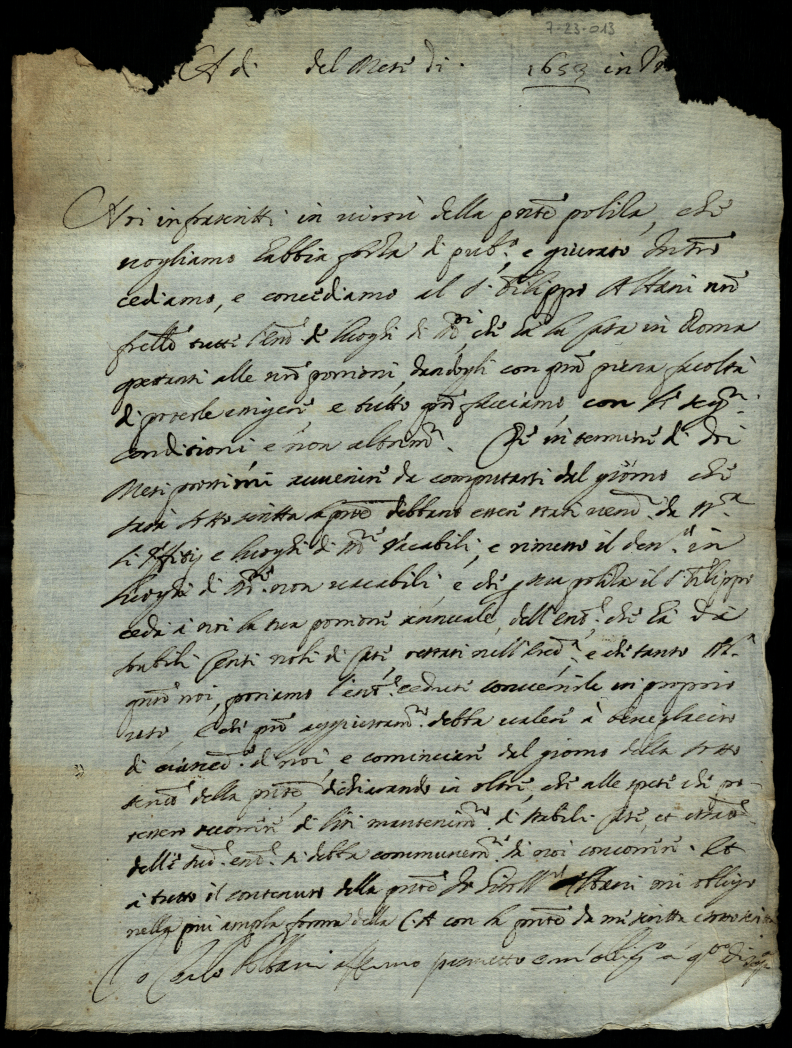 7-23-013
A di del Mese di 1653 in
Noi infrascritti in virtù della pñte poliza, che
vogliamo habbia forza di pub.º e giurato Instrõ
cediamo, e concediamo al S. Filippo Albani nrõ
frello tutte l'entrõ de luoghi di M.ti, che ha la Casa in Roma
spettanti alle nrẽ portioni, dandogli con pñte piena facoltà
di poterle esigere e tutto q̃sto facciamo, con le seg.ti
conditioni, e non altrim.te Che in termine di doi
Mesi prossimi avvenire da computarsi dal giorno che
sarà sottoscritta la pñte debbano essere stati vend.ti da
li Offitij e luoghi di M.ti vacabili, e rimesso il den.ro in
luoghi di M.ti non vacabili, e che p sua poliza il S. Filippo
ceda à noi la sua portione annuale, dell'ent.te che ha da
stabili Censi noli di Case, restati nell'hered.tà e che tanto
quãto noi, possiamo l'ent.te cedute convertirle in proprio
uso, e che q̃sto debba valere à beneplacito
di ciascũ.º di noi, e cominciare dal giorno della sotto
scritt.e della pñte, dichiarando in oltre, che alle spese che po-
tessero occorrere di liti mantenim.ti di stabili Case, et
delle sud.e ent.te si debba communem.te da noi concorrere. Et
à tutto il contenuto della pñte Io Albani mi obligo
nella più ampla forma della CA con la pñte da me scritta e sottoscritta
Io Carlo Albani affermo prometto e m'obligo a q.to di sopra